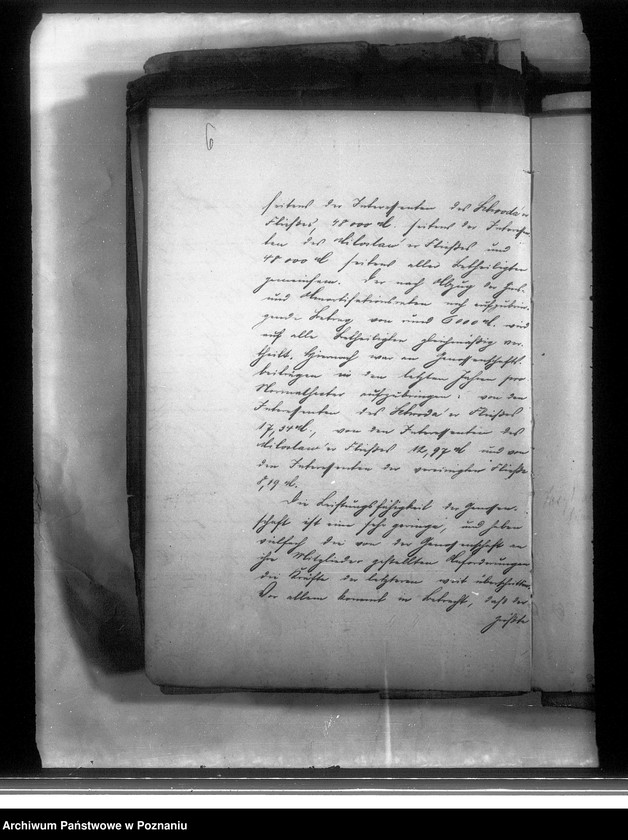 6
seitens der Interessenten des Schroda'er
Fließes, 48 000 M. seitens der Interessen
ten des Miloslaw'er Fließes und
48 000 M seitens aller Betheiligten
gemeinsam. Der nach Abzug der Zins-
und Amortisationsraten noch aufzubrin-
gende Betrag von rund 6000 M. wird
auf alle Betheiligten gleichmäßig ver-
theilt. Hiernach war an Genossenschafts-
beiträgen in den letzten Jahren pro
Normalhectar aufzubringen: von den
Interessenten des Schroda'er Fließes
17,34 M., von den Interessenten des
Miloslaw'er Fließes 12,97 M und von
den Interessenten der vereinigten Fließe
8,19 M.
Die Leistungsfähigkeit der Genossen-
schaft ist eine sehr geringe, und haben
vielfach die von der Genossenschaft an
ihre Mitglieder gestellten Anforderungen
die Kräfte der letzteren weit überschritten.
Vor allem kommt in Betracht, daß der
größte
Archiwum Państwowe w Poznaniu